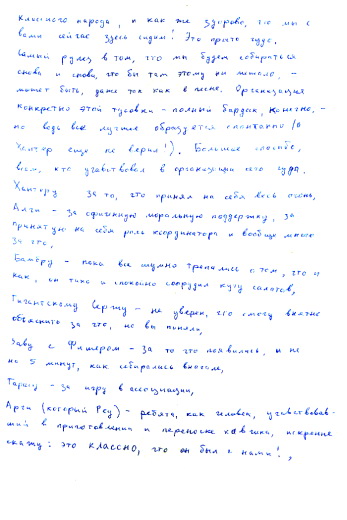 классного народа, и как же здорово, что мы с
вами сейчас здесь сидим! Это просто чудо.
Самый рулез в том, что мы будем собираться
снова и снова, что бы там этому ни мешало, -
может быть, даже так как в песне. Организация
конкретно этой тусовки - полный бардак, конечно, -
но ведь всё лучшее образуется спонтанно (а
Хантер ещё не верил!). Большое спасибо,
всем, кто участвовал в организации его чуда.
Хантеру за то, что принял на себя весь огонь,
Алги - за офигенную моральную поддержку, за
принятую на себя роль координатора и вообще много
за что,
Батёру - пока все шумно трепались о том, что и
как, он тихо и спокойно соорудил кучу салатов,
Гигантскому Вержу - не уверен, что смогу внятно
объяснить за что, но вы поняли,
Заву с Флюером - за то что появились, и не
на 5 минут, как собирались вначале,
Тарасу - за игру в ассоциации,
Арги (который Рсу) - ребята, как человек, участвовав-
ший в приготовлении и переноске, искренне
скажу: это КЛАССНО, что он был с нами!,